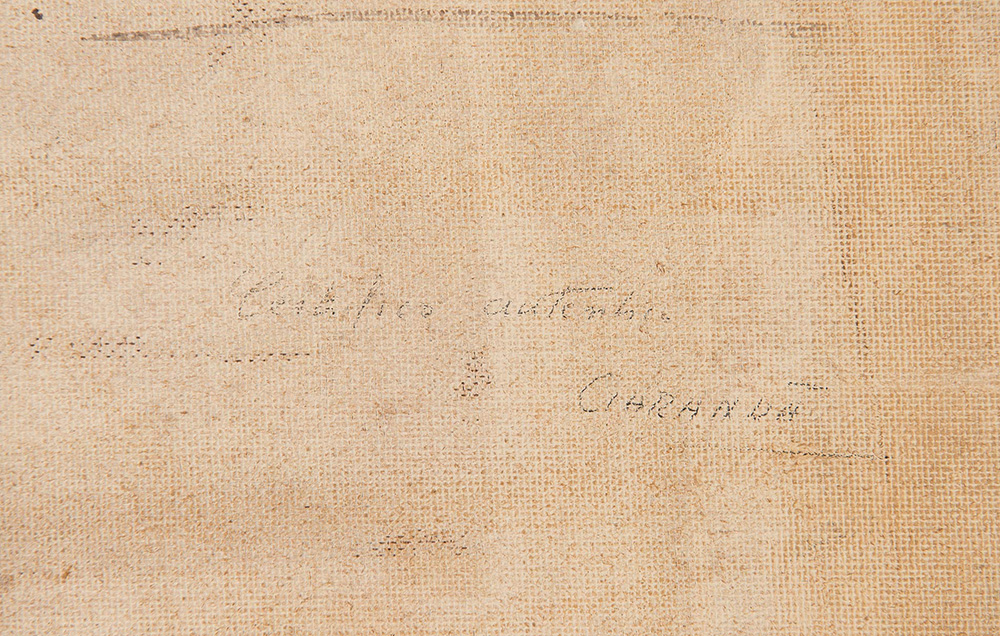 Certifico autentico
CIARANDA